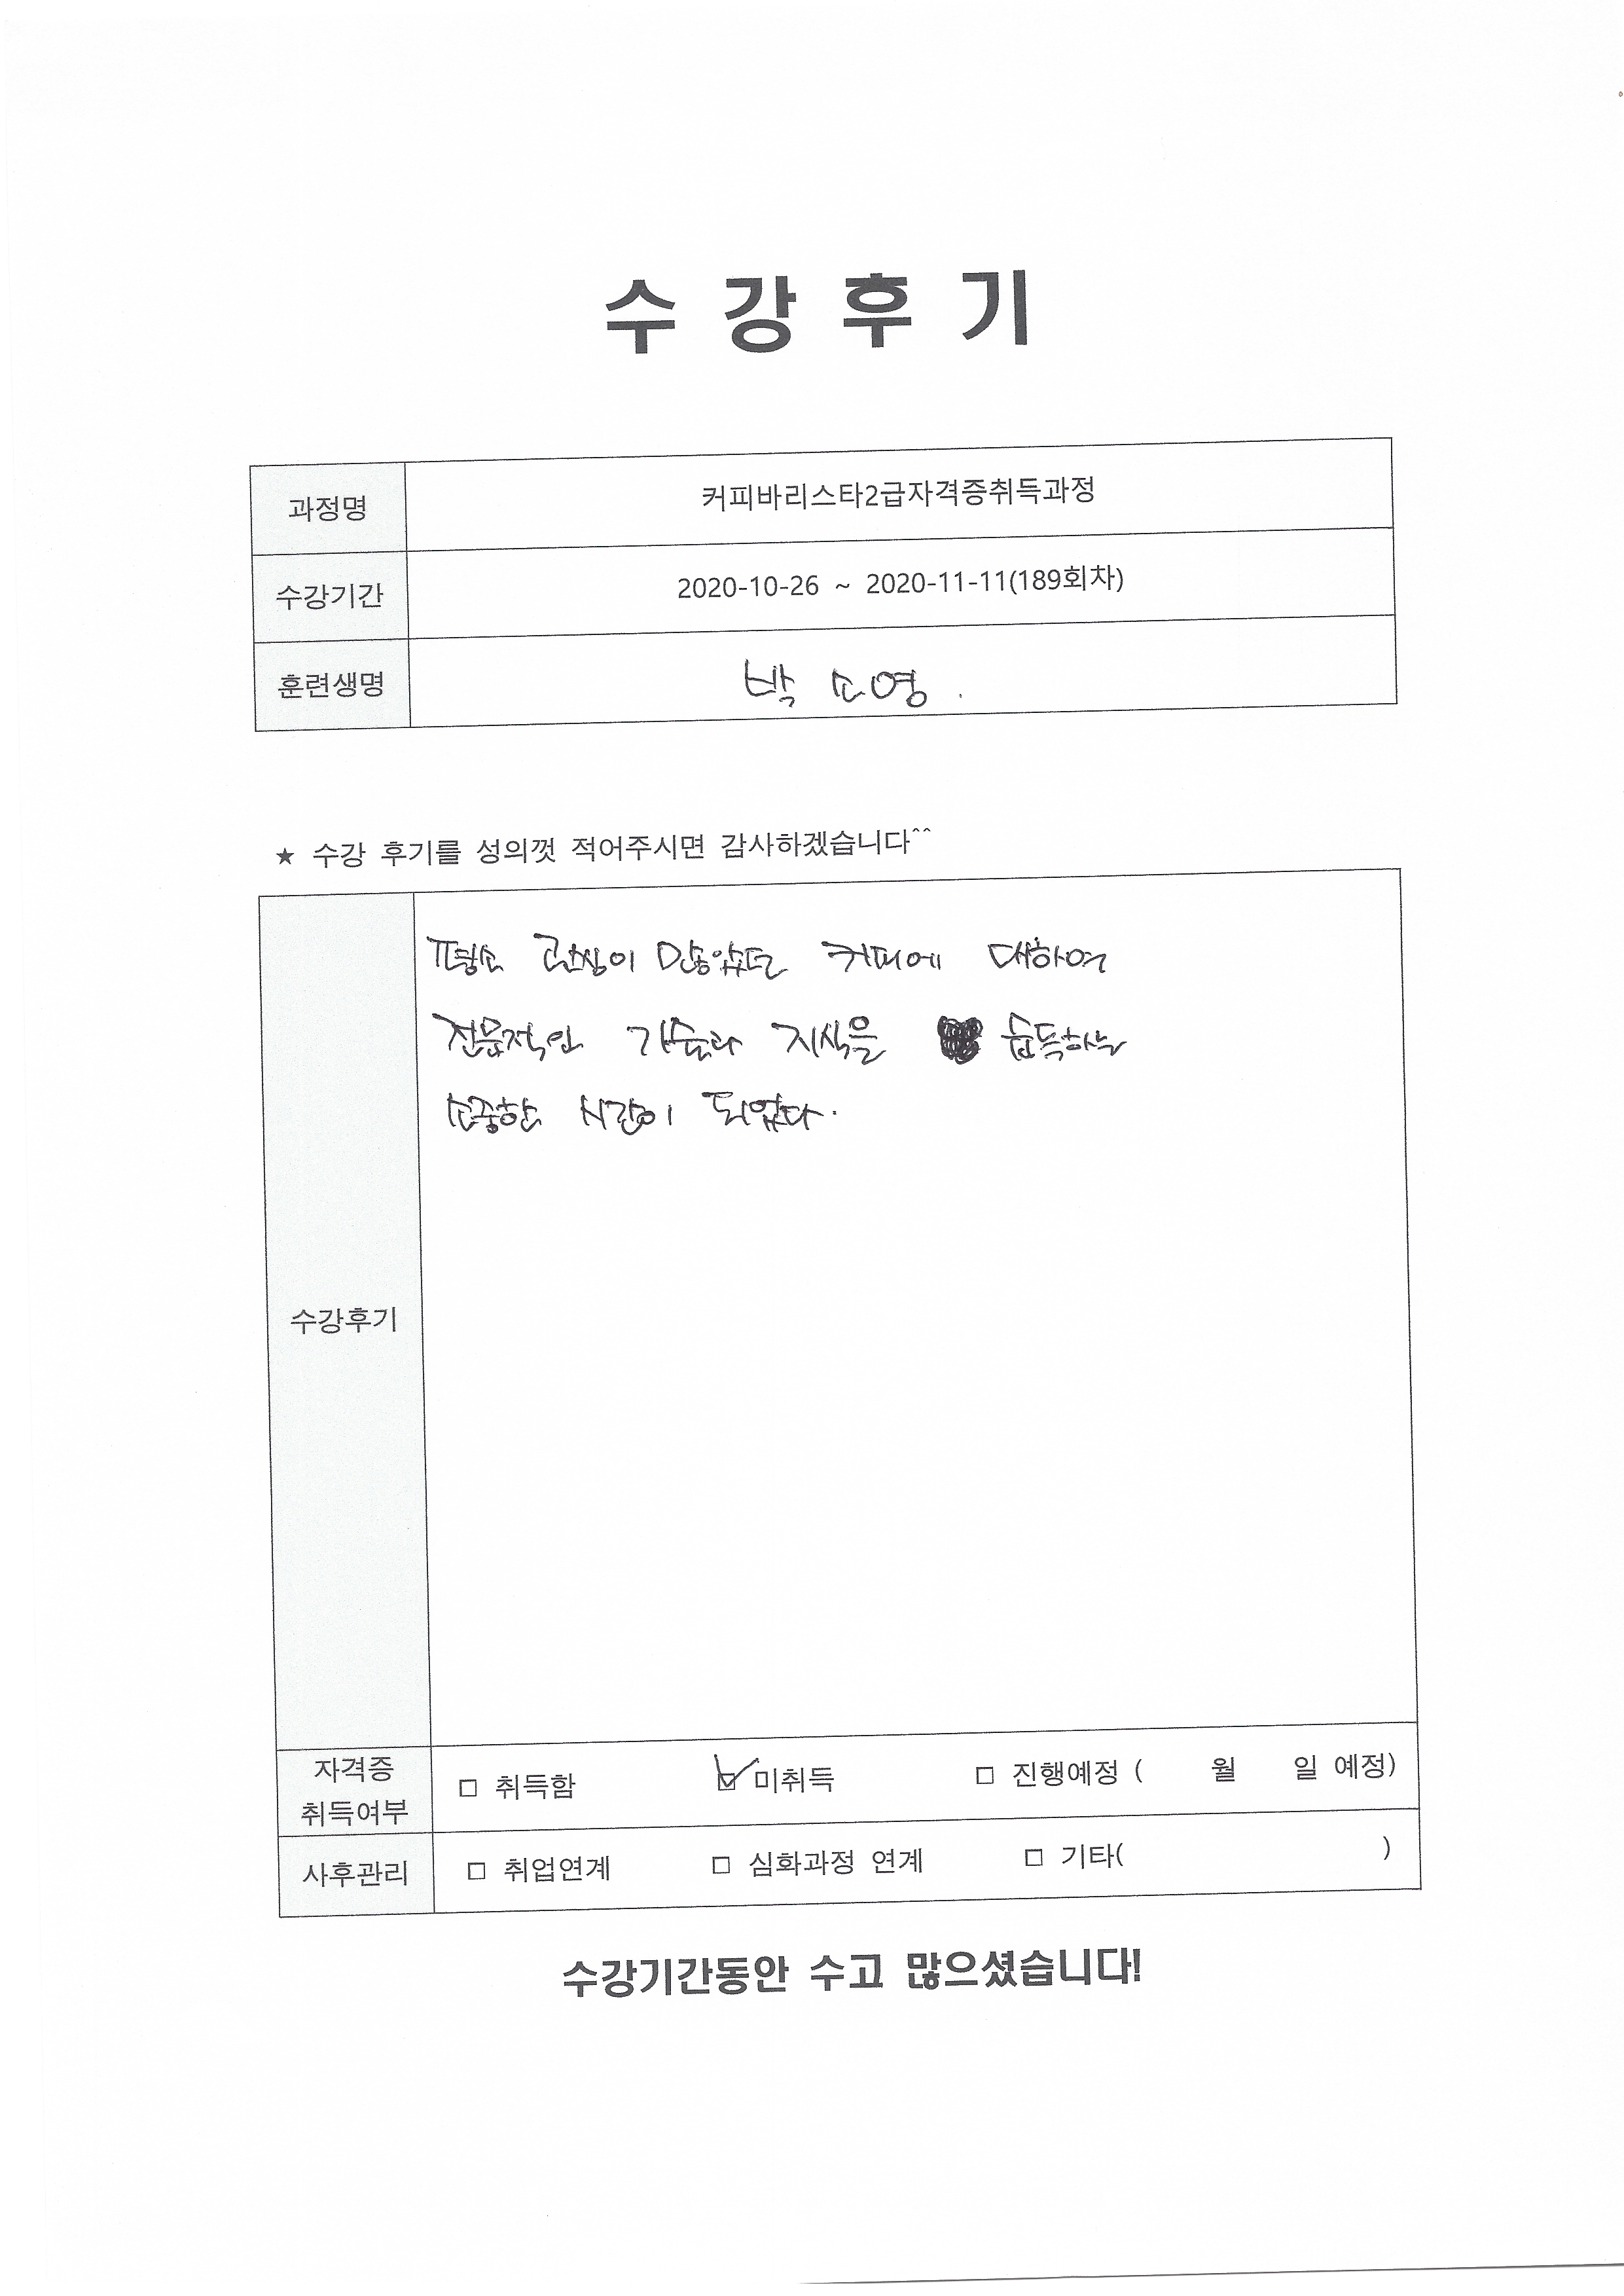 수 강 후 기
과정명 커피바리스타2급자격증취득과정
수강기간 2020-10-26 ~ 2020-11-11(189회차)
훈련생명 박 소영.
★ 수강 후기를 성의껏 적어주시면 감사하겠습니다^^
평소 관심이 많았던 커피에 대하여
전문적인 기술과 지식을 습득하는
소중한 시간이 되었다.
수강후기
자격증
취득여부 □ 취득함 ☑ 미취득 □ 진행예정 ( 월 일 예정)
사후관리 □ 취업연계 □ 심화과정 연계 □ 기타( )
수강기간동안 수고 많으셨습니다!